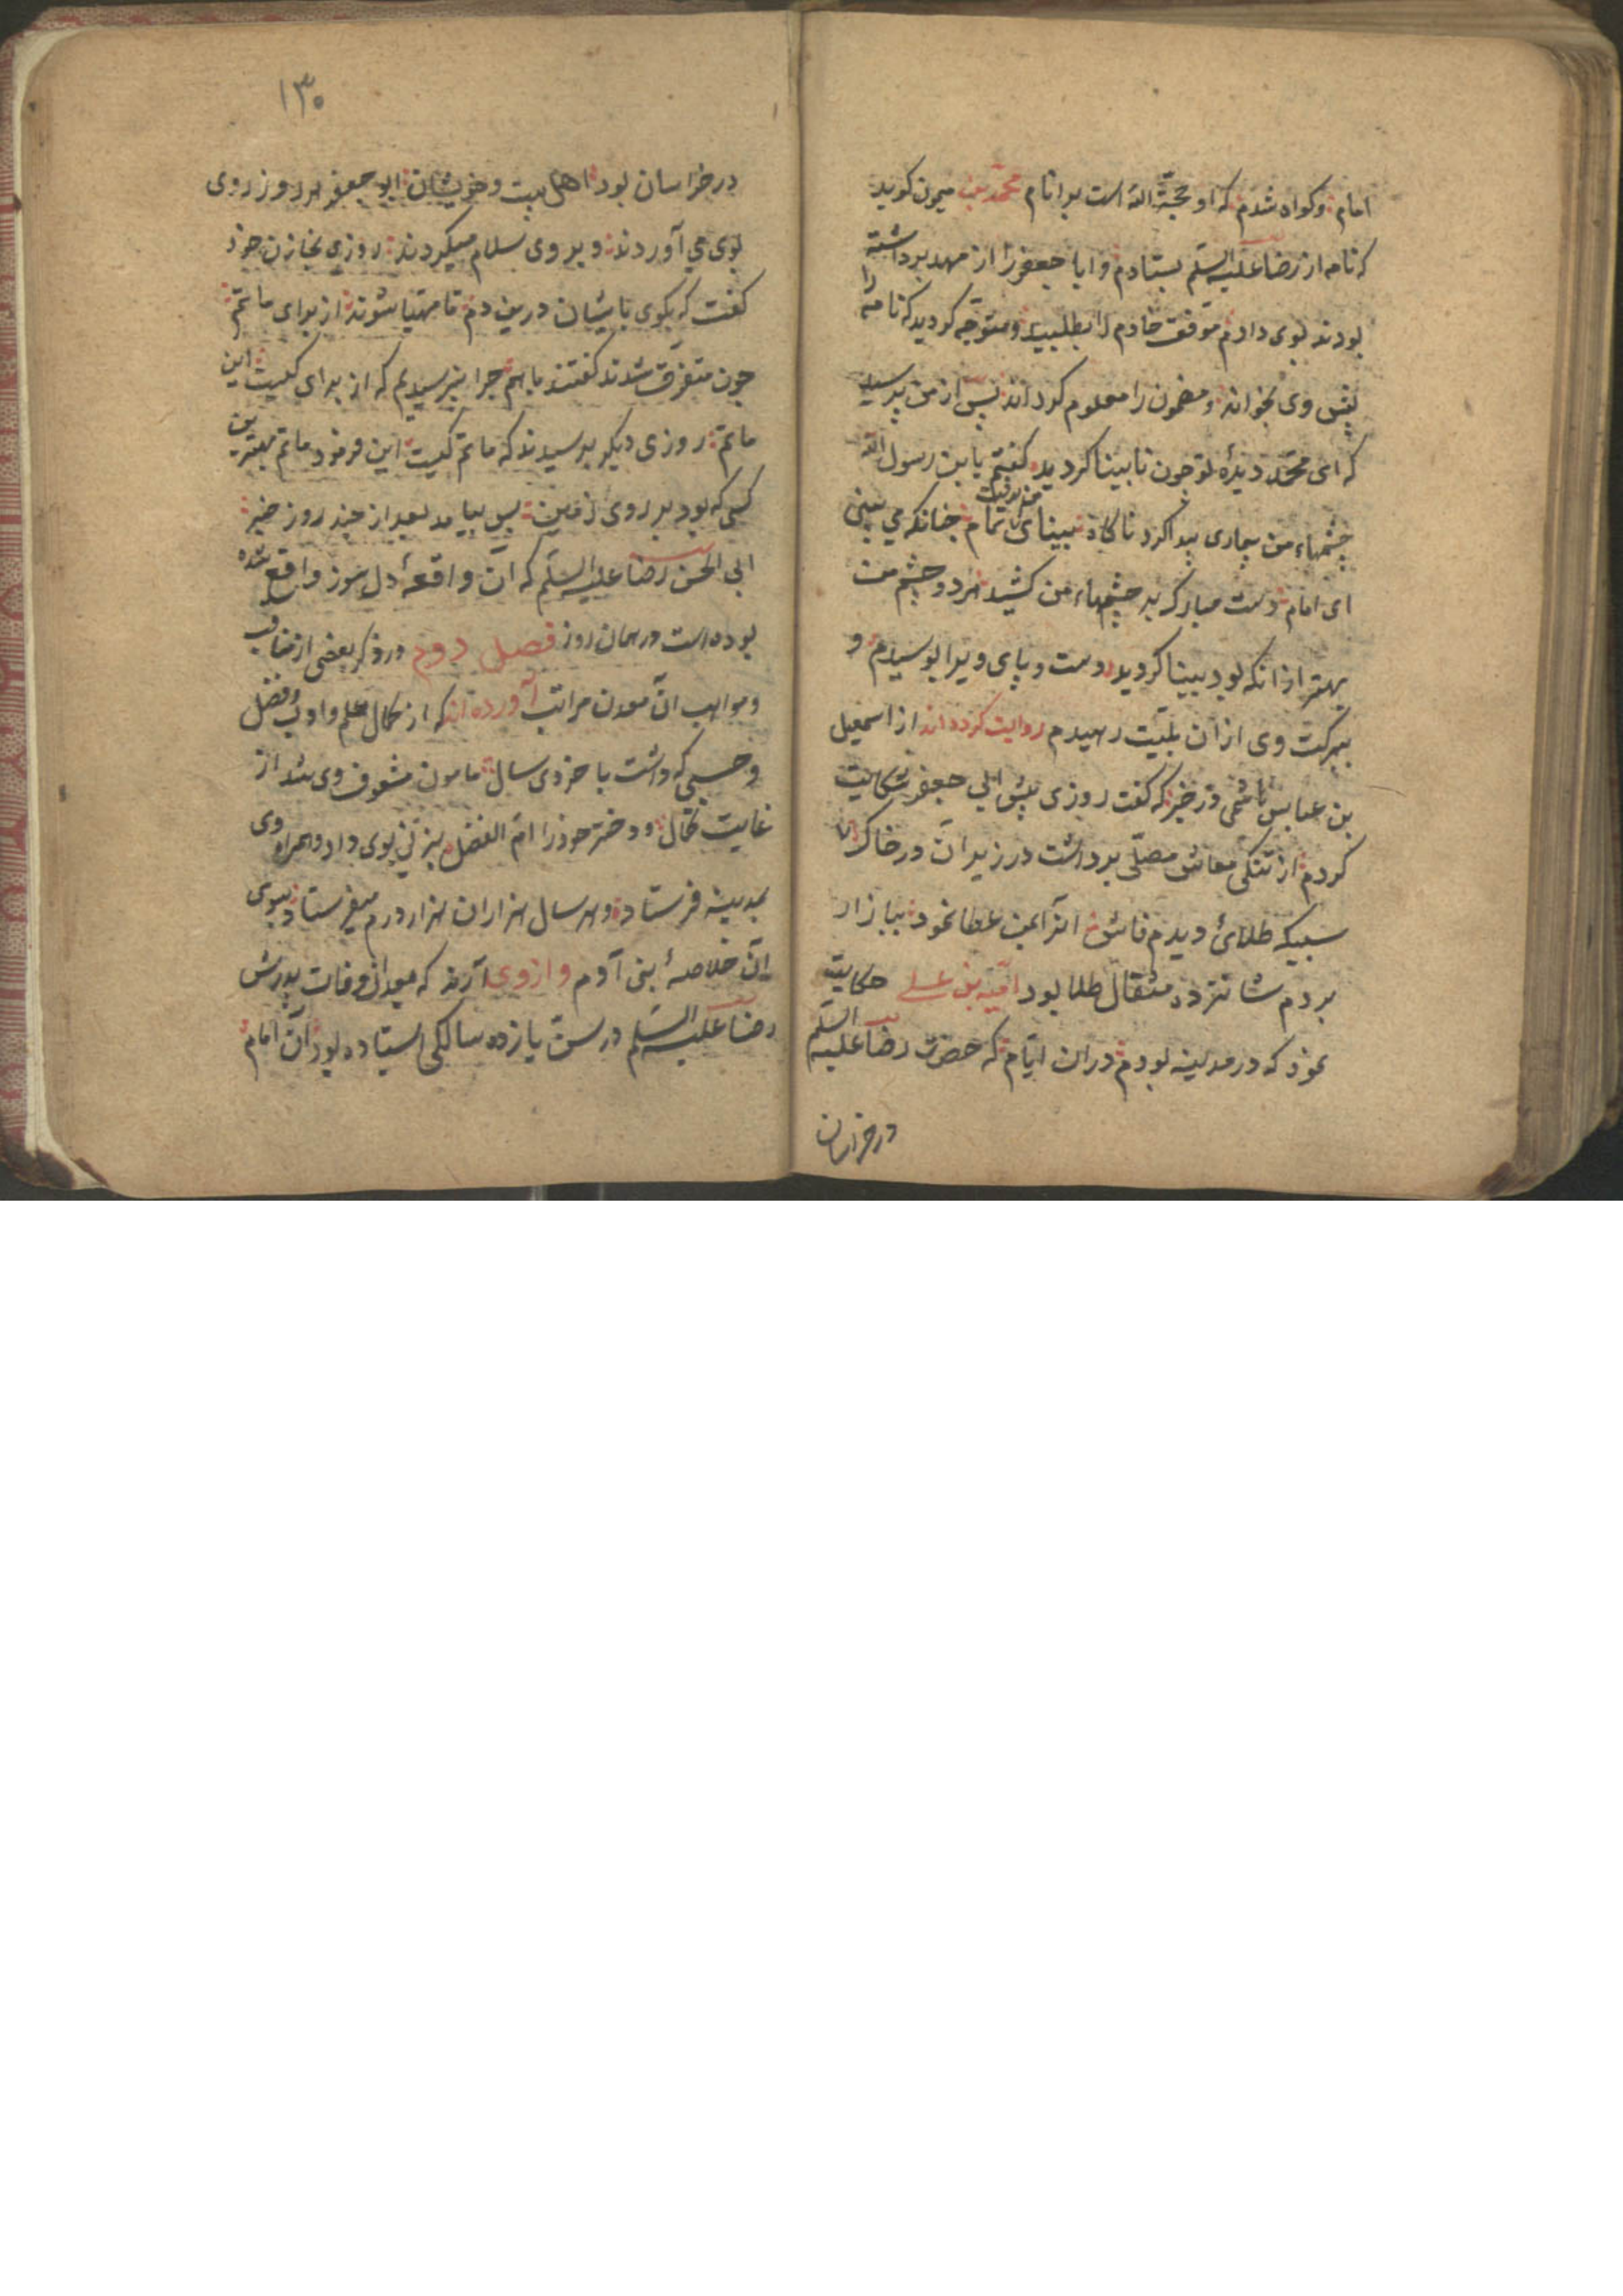 امام و کواه شدم که او حجة الله است بر انام محمد بن میمون کوید
که نامه از رضا علیه السلم بستادم و ابا جعفر را از مهد برداشته
بودند بوی دادم موفق خادم را بطلبید و متوجه کردید که نامه را
پیش وی بخواند و مضمون را معلوم کرداند پس از من پرسید
که ای محمد دیدهٔ تو چون نابینا کردید کفتم یا بن رسول الله
چشمهاء من بیماری پیدا کرد ناکاه بینای تمام من برفت چنانکه می بینی
ای امام دست مبارک بر چشمهاء من کشید هر دو چشم من
بهتر از انکه بود بینا کردید دست و پای ویرا بوسیدم و
ببرکت وی از ان بلیت رهیدم روایت کرده اند از اسمعیل
بن عباس هاشمی در خبر که کفت روزی پیش ابی جعفر شکایت
کردم از تنکی معاش مصلی برداشت در زیر آن در خاک
سبیکه طلائی دیدم فاش انرا بمن عطا نمود ببازار
بردم شانزده مثقال طلا بود امیه بن علی حکایت
نمود که در مدینه بودم در ان ایام که حضرت رضا علیه السلم
در خراسان
۱۳۰
در خراسان بود اهل بیت و خویشان ابو جعفر هر روز روی
بوی می آوردند و بر وی سلام میکردند روزی بخازن خود
کفت که بکوی با یشان درین دم تا مهیا شوند از برای ماتم
چون متفرق شدند کفتند باهم چرا نپرسیدیم که از برای کیست این
ماتم روزی دیکر پرسیدند که ماتم کیست این فرمود ماتم بهترین
کسی که بود بر روی زمین پس بیامد بعد از چند روز خبر
ابی الحسن رضا علیه السلم که آن واقعهٔ دل سوز واقع شده
بوده است در همان روز فصل دوم در ذکر بعضی از مناقب
و مواهب آن معدن مراتب آورده اند که از کمال علم و ادب و فضل
و حسبی که داشت با خردی سال مامون مشعوف وی شد از
غایت کمال و دختر خود را ام الفضل بزنی بوی داد و همراه وی
بمدینه فرستاد و هر سال هزاران هزار درم میفرستاد بسوی
آن خلاصهٔ بنی آدم و از وی آرند که بعد از وفات پدرش
رضا علیه السلم در سن یازده سالکی استاده بود آن امام